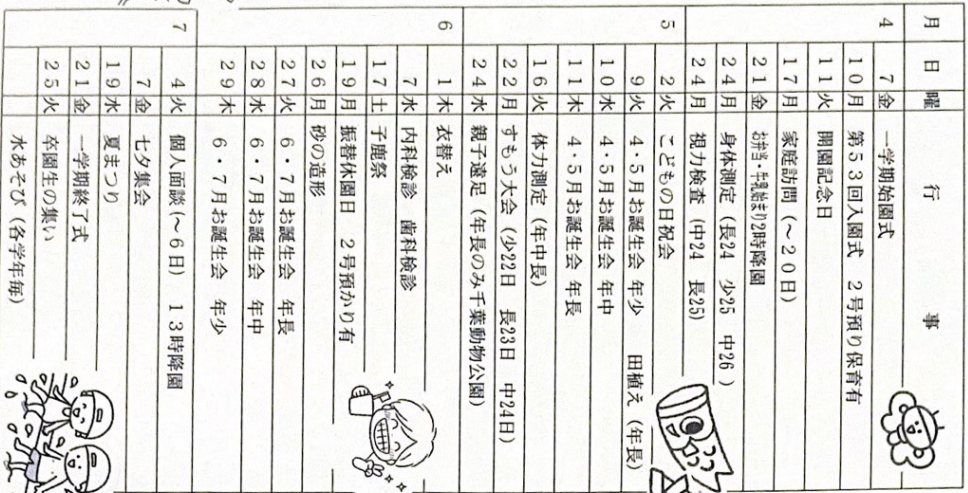 月 日 曜 行 事
4 7 金 一学期始園式
10 月 第53回入園式 2号預り保育有
11 火 開園記念日
17 月 家庭訪問(~20日)
21 金 お弁当・牛乳始まり2時降園
24 月 身体測定(長24 少25 中26)
24 月 視力検査(中24 長25)
5 2 火 こどもの日祝会
9 火 4・5月お誕生会 年少 田植え(年長)
10 水 4・5月お誕生会 年中
11 木 4・5月お誕生会 年長
16 火 体力測定(年中長)
22 月 すもう大会(少22日 長23日 中24日)
24 水 親子遠足(年長のみ千葉動物公園)
6 1 木 衣替え
7 水 内科検診 歯科検診
17 土 子鹿祭
19 月 振替休園日 2号預かり有
26 月 砂の造形
27 火 6・7月お誕生会 年長
28 水 6・7月お誕生会 年中
29 木 6・7月お誕生会 年少
7 4 火 個人面談(~6日) 13時降園
7 金 七夕集会
19 水 夏まつり
21 金 一学期終了式
25 火 卒園生の集い
水あそび(各学年毎)